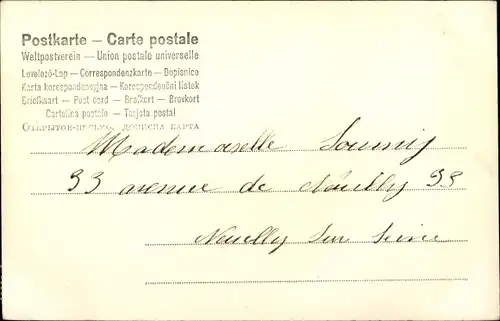 Postkarte – Carte postale
Weltpostverein – Union postale universelle
Levelező-Lap – Correspondenzkarte – Dopisnice
Karta korespondencyjna – Korespondenční lístek
Briefkaart – Post card – Brefkort – Brevkort
Cartolina postale – Tarjeta postal
Открытое письмо. дописна карта
Mademoiselle
33 avenue de Neuilly 33
Neuilly sur Seine